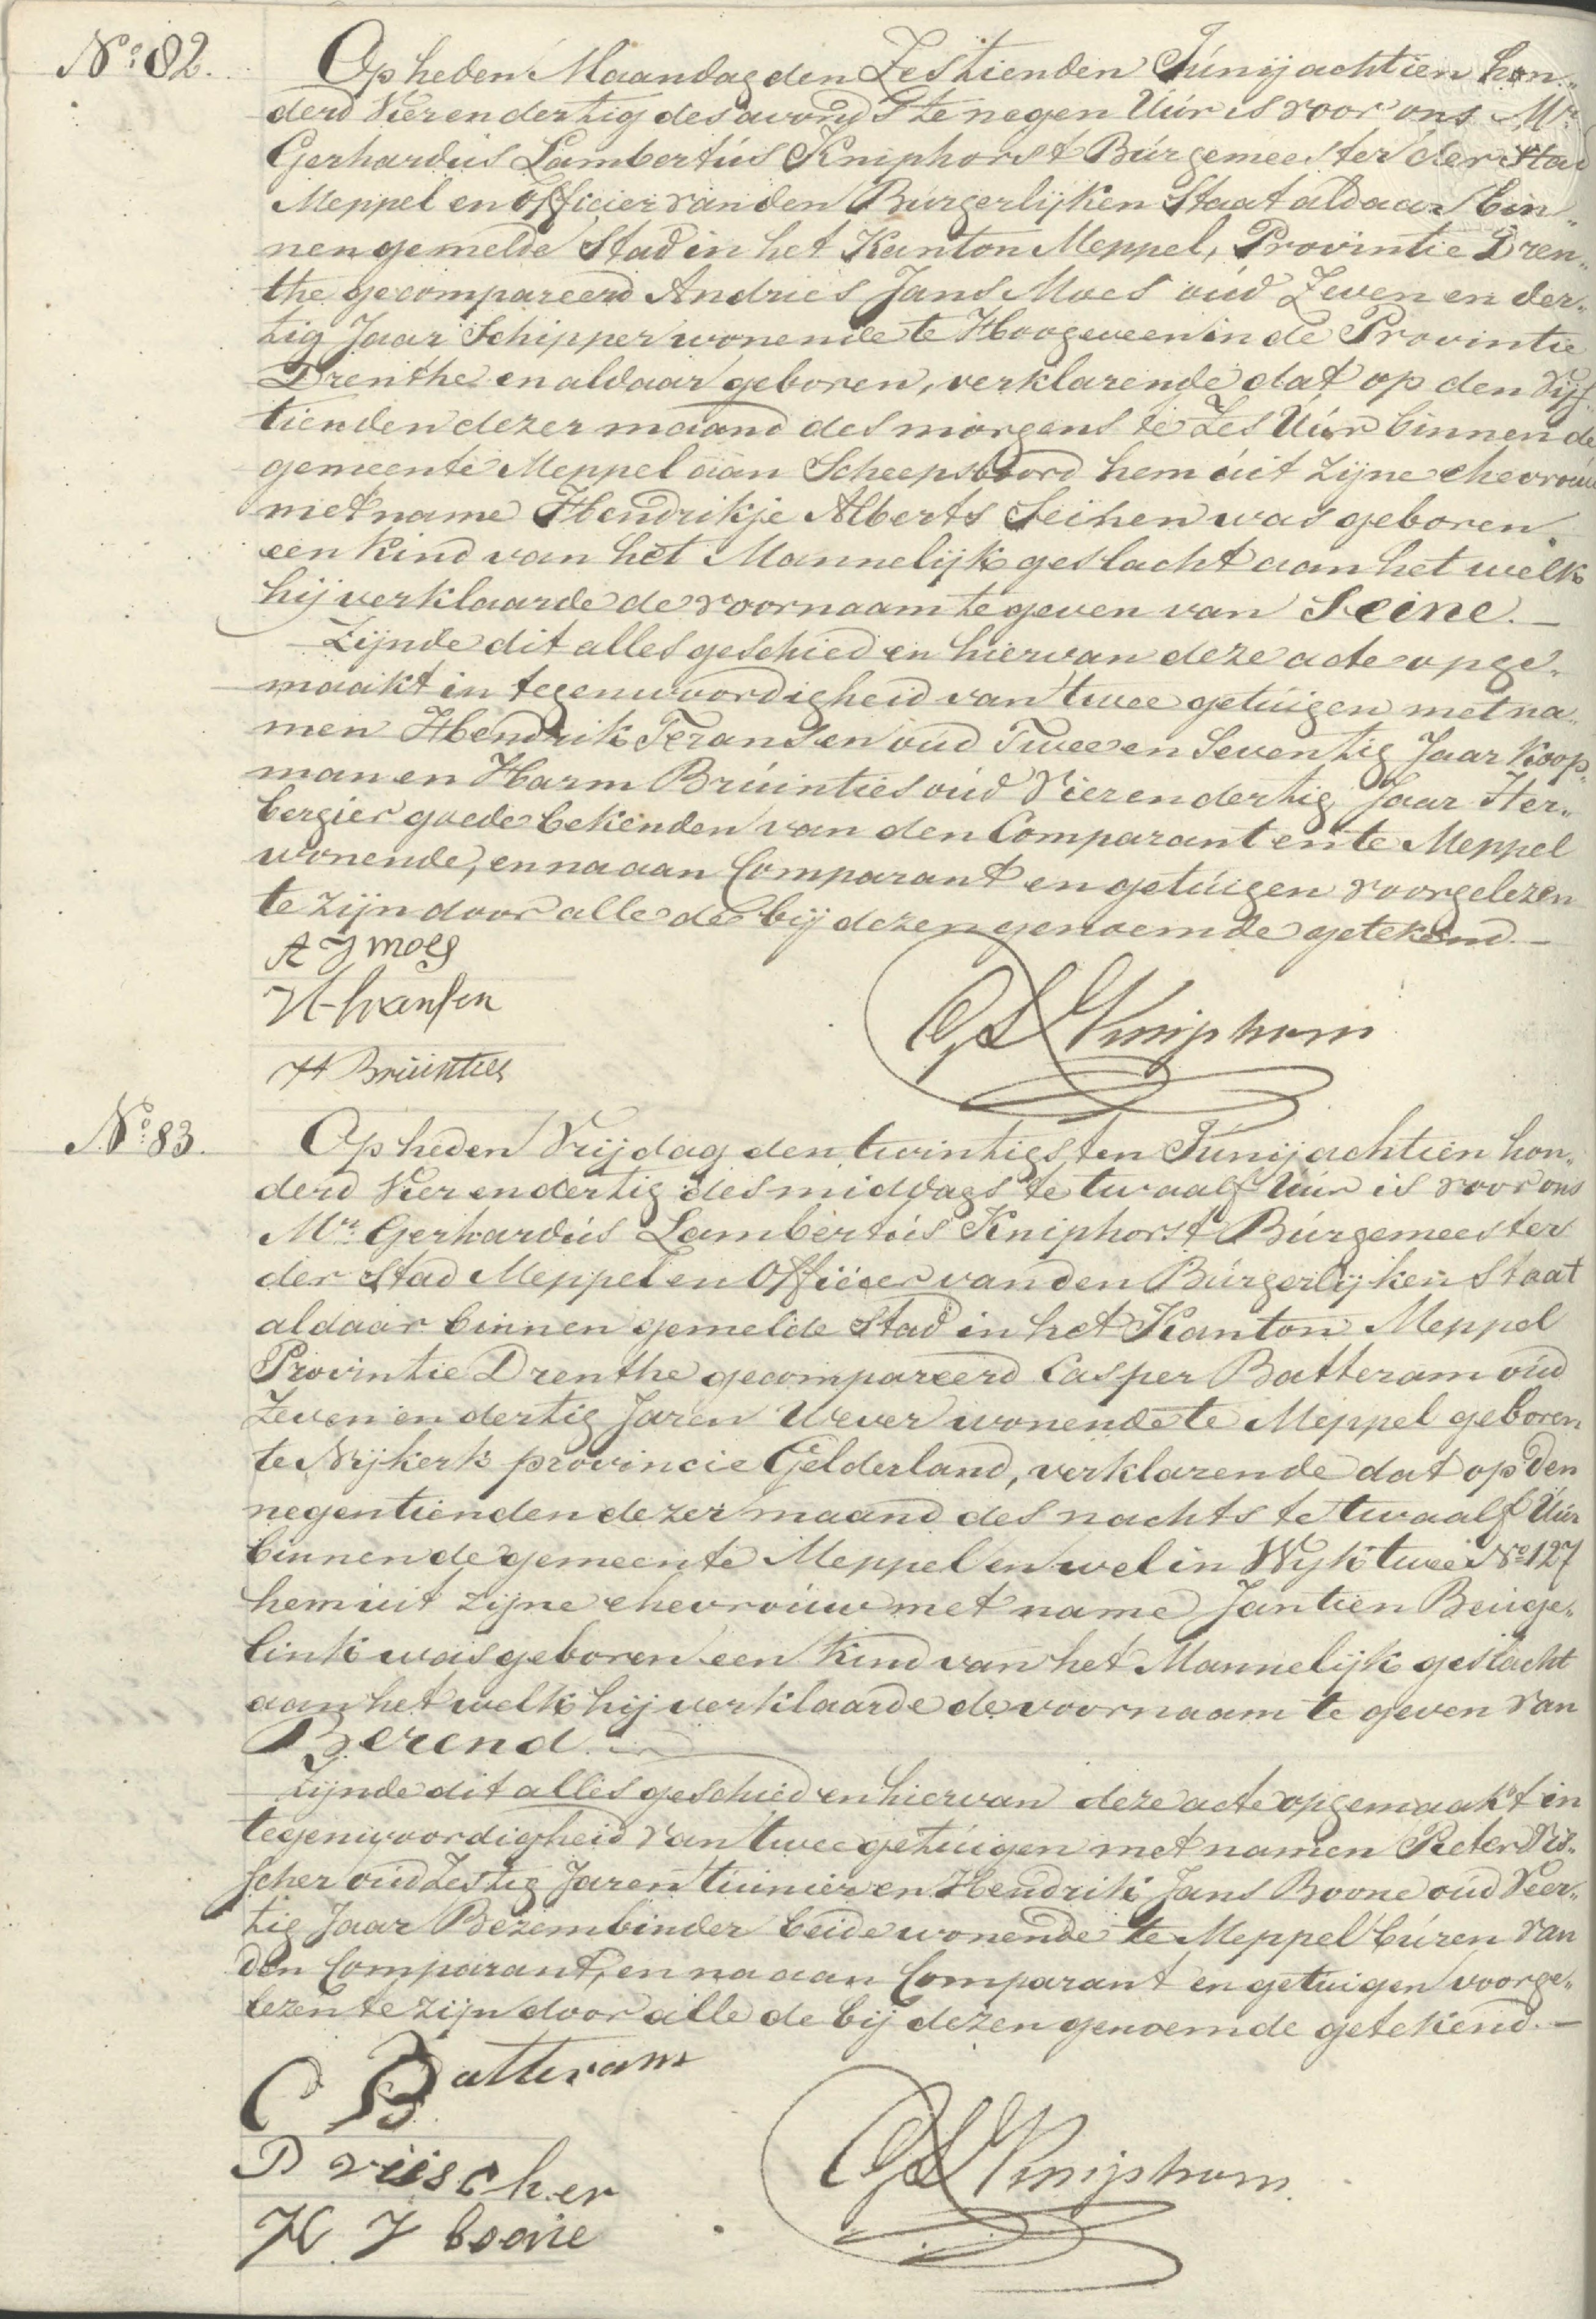 No. 82.
Op heden Maandag den Zestienden Junij achtien hon„
derd Vier en dertig des avonds te negen Uur is voor ons Mr.
Gerhardus Lambertus Kniphorst Burgemeester der Stad
Meppel en officier van den Burgerlijken Staat aldaar bin„
nen gemelde Stad in het Kanton Meppel, Provintie Dren„
the gecompareerd Andries Jans Moes oud Zeven en der„
tig Jaar Schipper wonende te Hoogeveen in de Provintie
Drenthe en aldaar geboren, verklarende dat op den Vijf„
tienden dezer maand des morgens te Zes Uur binnen de
gemeente Meppel aan Scheepsboord hem uit zijne ehevrouw
met name Hendrikje Alberts Seinen was geboren
een kind van het Mannelijk geslacht aan het welk
hij verklaarde de voornaam te geven van Seine.
Zijnde dit alles geschied en hiervan deze acte opge„
maakt in tegenwoordigheid van twee getuigen met na„
men Hendrik Fransen oud Twee en Seventig Jaar Koop„
man en Harm Bruinties oud Vier en dertig Jaar Her„
bergier goede bekenden van den Comparant en te Meppel
wonende, en na aan Comparant en getuigen voorgelezen
te zijn door alle de bij dezen genoemde getekend.
A J moes
H fransen
GL Kniphorst
H Bruinties
No. 83.
Op heden Vrijdag den twintigsten Junij achtien hon„
derd Vier en dertig des middags te twaalf Uur is voor ons
Mr. Gerhardus Lambertus Kniphorst Burgemeester
der Stad Meppel en Officier van den Burgerlijken Staat
aldaar binnen gemelde Stad in het Kanton Meppel
Provintie Drenthe gecompareerd Casper Batteram oud
Zeven en dertig Jaren Wever wonende te Meppel geboren
te Nijkerk provincie Gelderland, verklarende dat op den
negentienden dezer maand des nachts te twaalf Uur
binnen de gemeente Meppel en wel in Wijk twee No. 127
hem uit zijne ehevrouw met name Jantien Beuge„
link was geboren een kind van het Mannelijk geslacht
aan het welk hij verklaarde de voornaam te geven van
Berend.
Zijnde dit alles geschied en hiervan deze acte opgemaakt in
tegenwoordigheid van twee getuigen met namen Pieter Vis„
scher oud Zestig Jaren tuinier en Hendrik Jans Boone oud Veer„
tig Jaar Bezembinder beide wonende te Meppel buren van
den Comparant, en na aan Comparant en getuigen voorge„
lezen te zijn door alle de bij dezen genoemde getekend.
C Batteram
P visscher
GL Kniphorst
H J boone